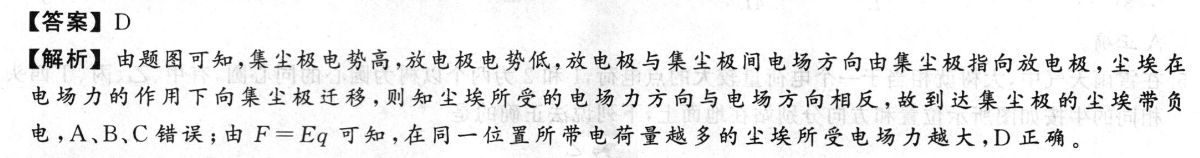 【答案】D
【解析】由题图可知,集尘极电势高,放电极电势低,放电极与集尘极间电场方向由集尘极指向放电极,尘埃在
电场力的作用下向集尘极迁移,则知尘埃所受的电场力方向与电场方向相反,故到达集尘极的尘埃带负
电,A、B、C错误;由F=Eq可知,在同一位置所带电荷量越多的尘埃所受电场力越大,D正确。